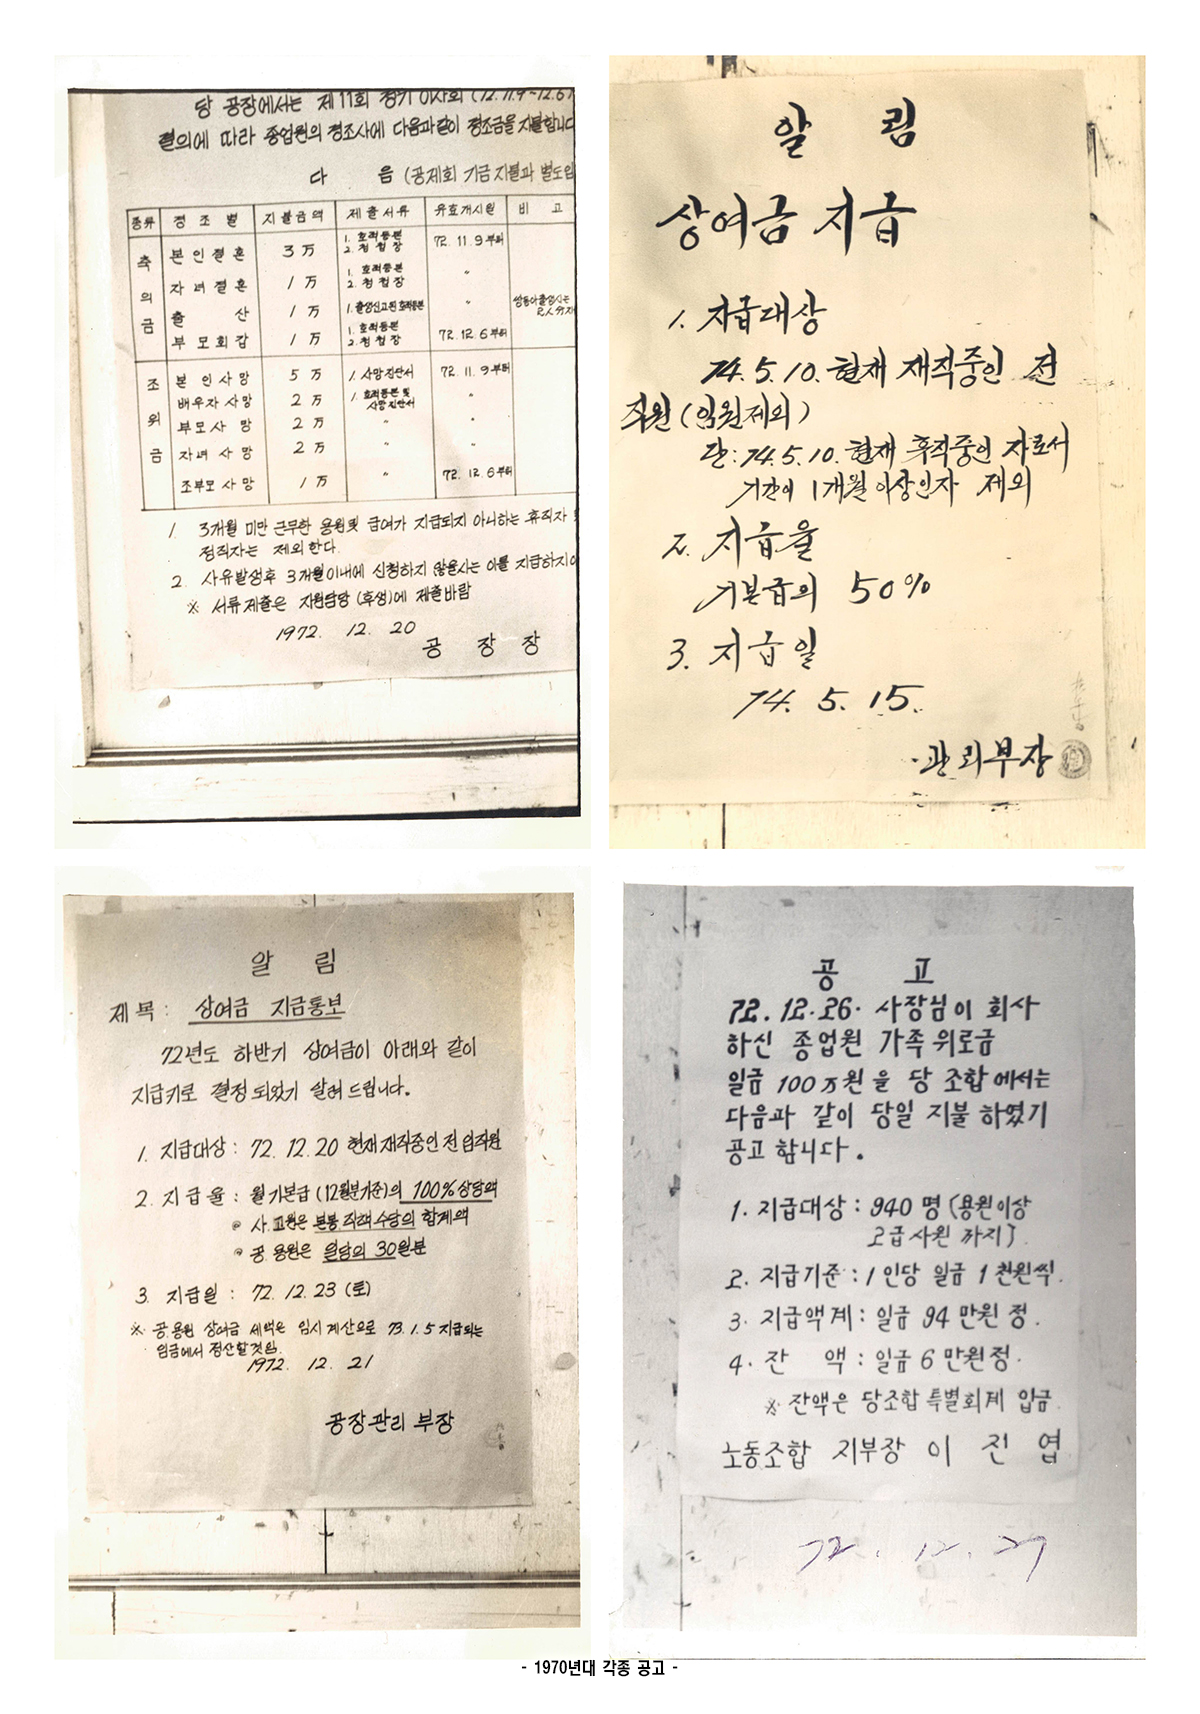 당 공장에서는 제11회 정기 이사회 (72.11.9~12.6)
결의에 따라 종업원의 경조사에 다음과 같이 경조금을 지불합니다
다 음 (공제회 기금 지불과 별도임
종류 경조별 지불금액 제출서류 유효개시일 비 고
축의금
본인결혼 3万 1. 호적등본 2. 청첩장 72.11.9부터
자녀결혼 1万 1. 호적등본 2. 청첩장 〃
출 산 1万 1. 출생신고된 호적등본 〃 쌍동아출생시는 2人分지
부모회갑 1万 1. 호적등본 2. 청첩장 72.12.6부터
조위금
본인사망 5万 1. 사망진단서 72.11.9부터
배우자사망 2万 1. 호적등본 및 사망진단서 〃
부모사망 2万 〃 〃
자녀사망 2万 〃 〃
조부모사망 1万 〃 72.12.6부터
1. 3개월 미만 근무한 용원및 급여가 지급되지 아니하는 휴직자 및
정직자는 제외한다.
2. 사유발생후 3개월이내에 신청하지 않을시는 이를 지급하지아
※ 서류제출은 자원담당 (후생)에 제출바람
1972. 12. 20
공 장 장
알 림
상여금 지급
1. 지급대상
74.5.10. 현재 재직중인 전
직원 (임원제외)
단: 74.5.10. 현재 휴직중인 자로서
기간이 1개월 이상인자 제외
2. 지급율
기본급의 50%
3. 지급일
74. 5. 15.
관리부장
알 림
제목: 상여금 지급통보
72년도 하반기 상여금이 아래와 같이
지급키로 결정되었기 알려 드립니다.
1. 지급대상: 72.12.20 현재 재직중인 전 임직원
2. 지급율: 월기본급 (12월분기준)의 100% 상당액
사.고원은 본봉 직책수당의 합계액
공.용원은 일당의 30일분
3. 지급일: 72.12.23 (토)
※ 공.용원 상여금 세액은 임시계산으로 73.1.5 지급되는
임금에서 정산할것임.
1972. 12. 21
공장관리 부장
공 고
72.12.26. 사장님이 회사
하신 종업원 가족위로금
일금 100万원을 당 조합에서는
다음과 같이 당일 지불 하였기
공고 합니다.
1. 지급대상: 940名 (용원이상
2급사원 까지)
2. 지급기준: 1인당 일금 1천원씩.
3. 지급액계: 일금 94만원 정.
4. 잔 액: 일금 6만원정.
※ 잔액은 당조합 특별회계 입금
노동조합 지부장 이 진 엽
72. 12. 27
- 1970년대 각종 공고 -